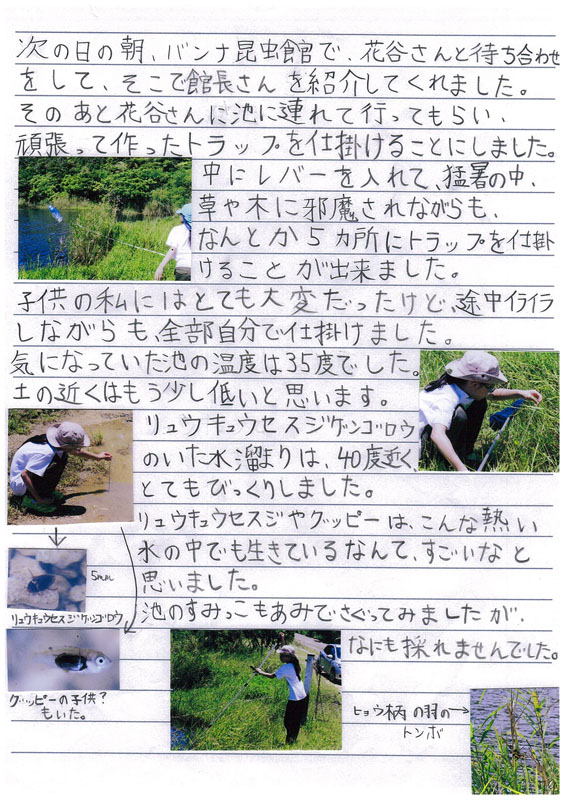 次の日の朝、バンナ昆虫館で、花谷さんと待ち合わせ
をして、そこで館長さんを紹介してくれました。
そのあと花谷さんに池に連れて行ってもらい、
頑張って作ったトラップを仕掛けることにしました。
中にレバーを入れて、猛暑の中、
草や木に邪魔されながらも、
なんとか5カ所にトラップを仕掛
けることが出来ました。
子供の私にはとても大変だったけど、途中イライラ
しながらも、全部自分で仕掛けました。
気になっていた池の温度は35度でした。
土の近くはもう少し低いと思います。
リュウキュウセスジゲンゴロウ
のいた水溜まりは、40度近く、
とてもびっくりしました。
リュウキュウセスジやグッピーは、こんな熱い
水の中でも生きているなんて、すごいなと
思いました。
池のすみっこもあみでさぐってみましたが、
なにも採れませんでした。
5mm
リュウキュウセスジゲンゴロウ
グッピーの子供?
もいた。
ヒョウ柄の羽の→
トンボ